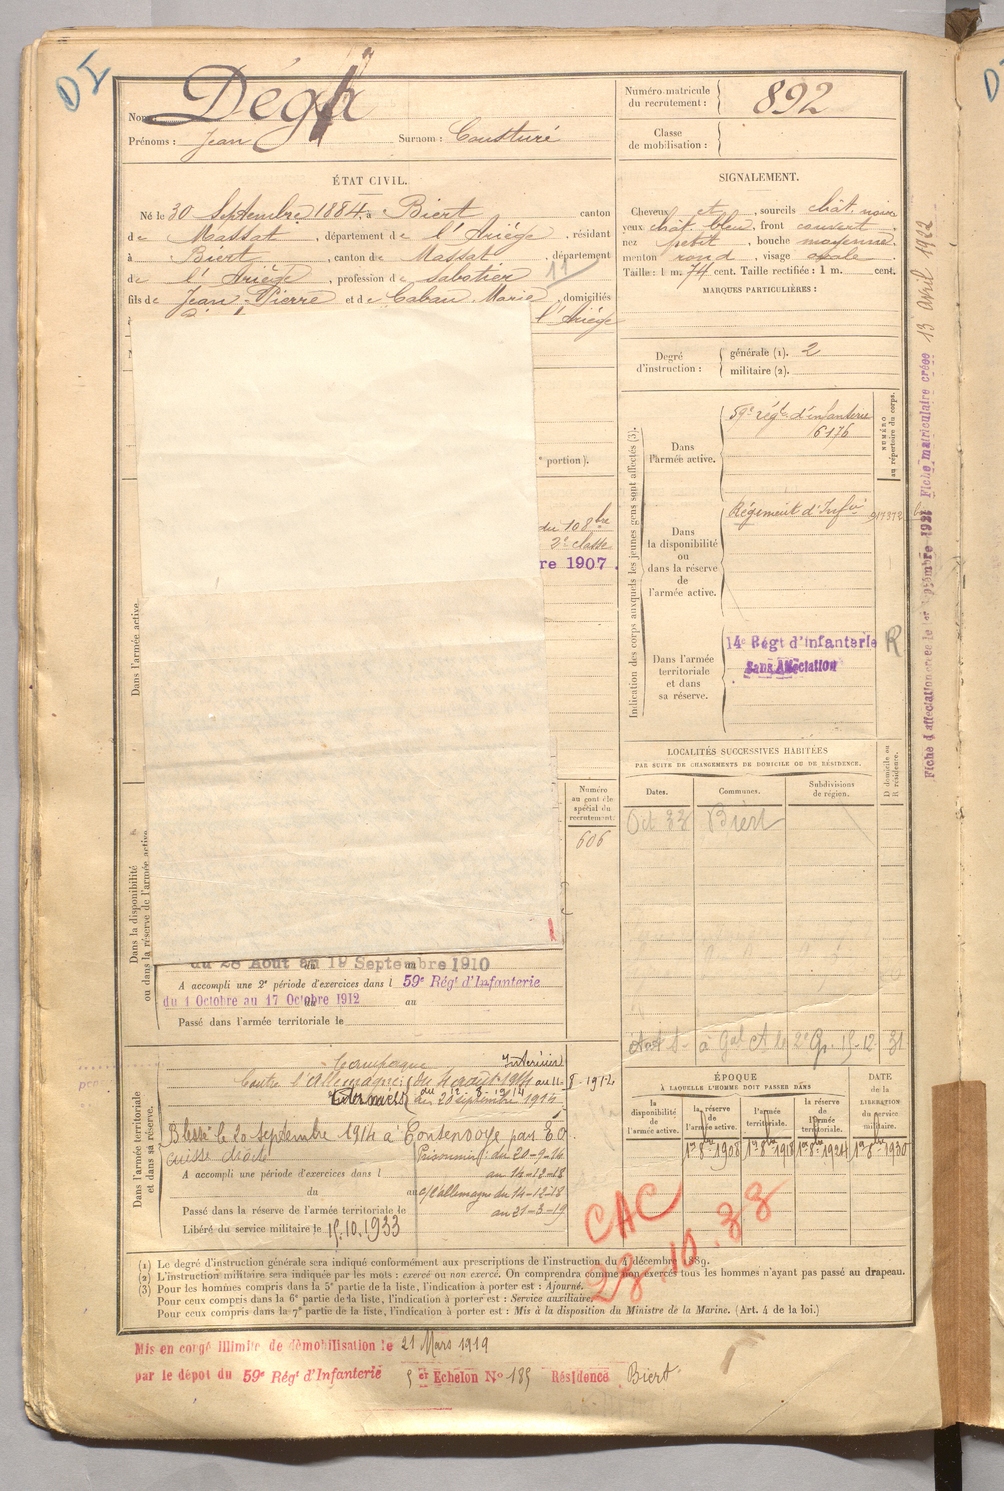 DI
Nom
Prénoms : Jean Surnom : Cousturé
Numéro matricule
du recrutement : 892
Classe
de mobilisation :
ÉTAT CIVIL.
Né le 30 Septembre 1884, à Biert canton
de Massat, département de l'Ariège, résidant
à Biert, canton de Massat, département
de l'Ariège, profession de sabotier 11
fils de Jean-Pierre et de Caban Marie, domiciliés
l'Ariège
SIGNALEMENT.
Cheveux et, sourcils chât. noirs
yeux chât. bleu, front couvert
nez petit, bouche moyenne
menton rond, visage ovale
Taille : 1 m. 74 cent. Taille rectifiée : 1 m. cent.
MARQUES PARTICULIÈRES :
Degré
d'instruction :
générale (1). 2
militaire (2).
portion).
du 108bre
2e classe
re 1907.
Dans l'armée active.
Indication des corps auxquels les jeunes gens sont affectés (3).
NUMÉRO
au répertoire du corps.
Dans
l'armée active.
59e régt d'infanterie
6176
Dans
la disponibilité
ou
dans la réserve
de
l'armée active.
Régiment d'Infie
Dans l'armée
territoriale
et dans
sa réserve.
14e Régt d'infanterie
Sans Affectation
R
Fiche d'affectation créée le 1er Septembre 1921 Fiche matriculaire créée 13 avril 1922
LOCALITÉS SUCCESSIVES HABITÉES
PAR SUITE DE CHANGEMENTS DE DOMICILE OU DE RÉSIDENCE.
Dates. Communes. Subdivisions
de région.
D domicile ou
R résidence.
Oct 33 Biert
Numéro
au contrôle
spécial du
recrutement.
606
Dans la disponibilité
ou dans la réserve de l'armée active.
du 28 Août au 19 Septembre 1910
A accompli une 2e période d'exercices dans l 59e Régt d'Infanterie
du 1 Octobre au 17 Octobre 1912 au
Passé dans l'armée territoriale le
Dans l'armée territoriale
et dans sa réserve.
Campagne
Contre l'Allemagne : du 4 août 1914 au 11-8-1914
Intérieur
au 20 septembre 1914
Blessé le 20 septembre 1914 à Consenvoye par E.O.
cuisse droite
Prisonnier : du 20-9-14
A accompli une période d'exercices dans l au 14-12-18
du au c/l'allemagne du 14-12-18
Passé dans la réserve de l'armée territoriale le au 21-3-19
Libéré du service militaire le 15.10.1933
ÉPOQUE
À LAQUELLE L'HOMME DOIT PASSER DANS
DATE
de la
LIBÉRATION
du service
militaire.
la
disponibilité
de l'armée active.
la réserve
de
l'armée active.
l'armée
territoriale.
la réserve
de
l'armée
territoriale.
1er 8bre 1908 1er 8bre 1918 1er 8bre 1924 1er 8bre 1930
CAC
28.10.38
(1) Le degré d'instruction générale sera indiqué conformément aux prescriptions de l'instruction du 4 décembre 1889.
(2) L'instruction militaire sera indiquée par les mots : exercé ou non exercé. On comprendra comme non exercés tous les hommes n'ayant pas passé au drapeau.
(3) Pour les hommes compris dans la 5e partie de la liste, l'indication à porter est : Ajourné.
Pour ceux compris dans la 6e partie de la liste, l'indication à porter est : Service auxiliaire.
Pour ceux compris dans la 7e partie de la liste, l'indication à porter est : Mis à la disposition du Ministre de la Marine. (Art. 4 de la loi.)
Mis en congé illimité de démobilisation le 21 Mars 1919
par le dépôt du 59e Régt d'Infanterie 5er Echelon No 185 Résidence Biert